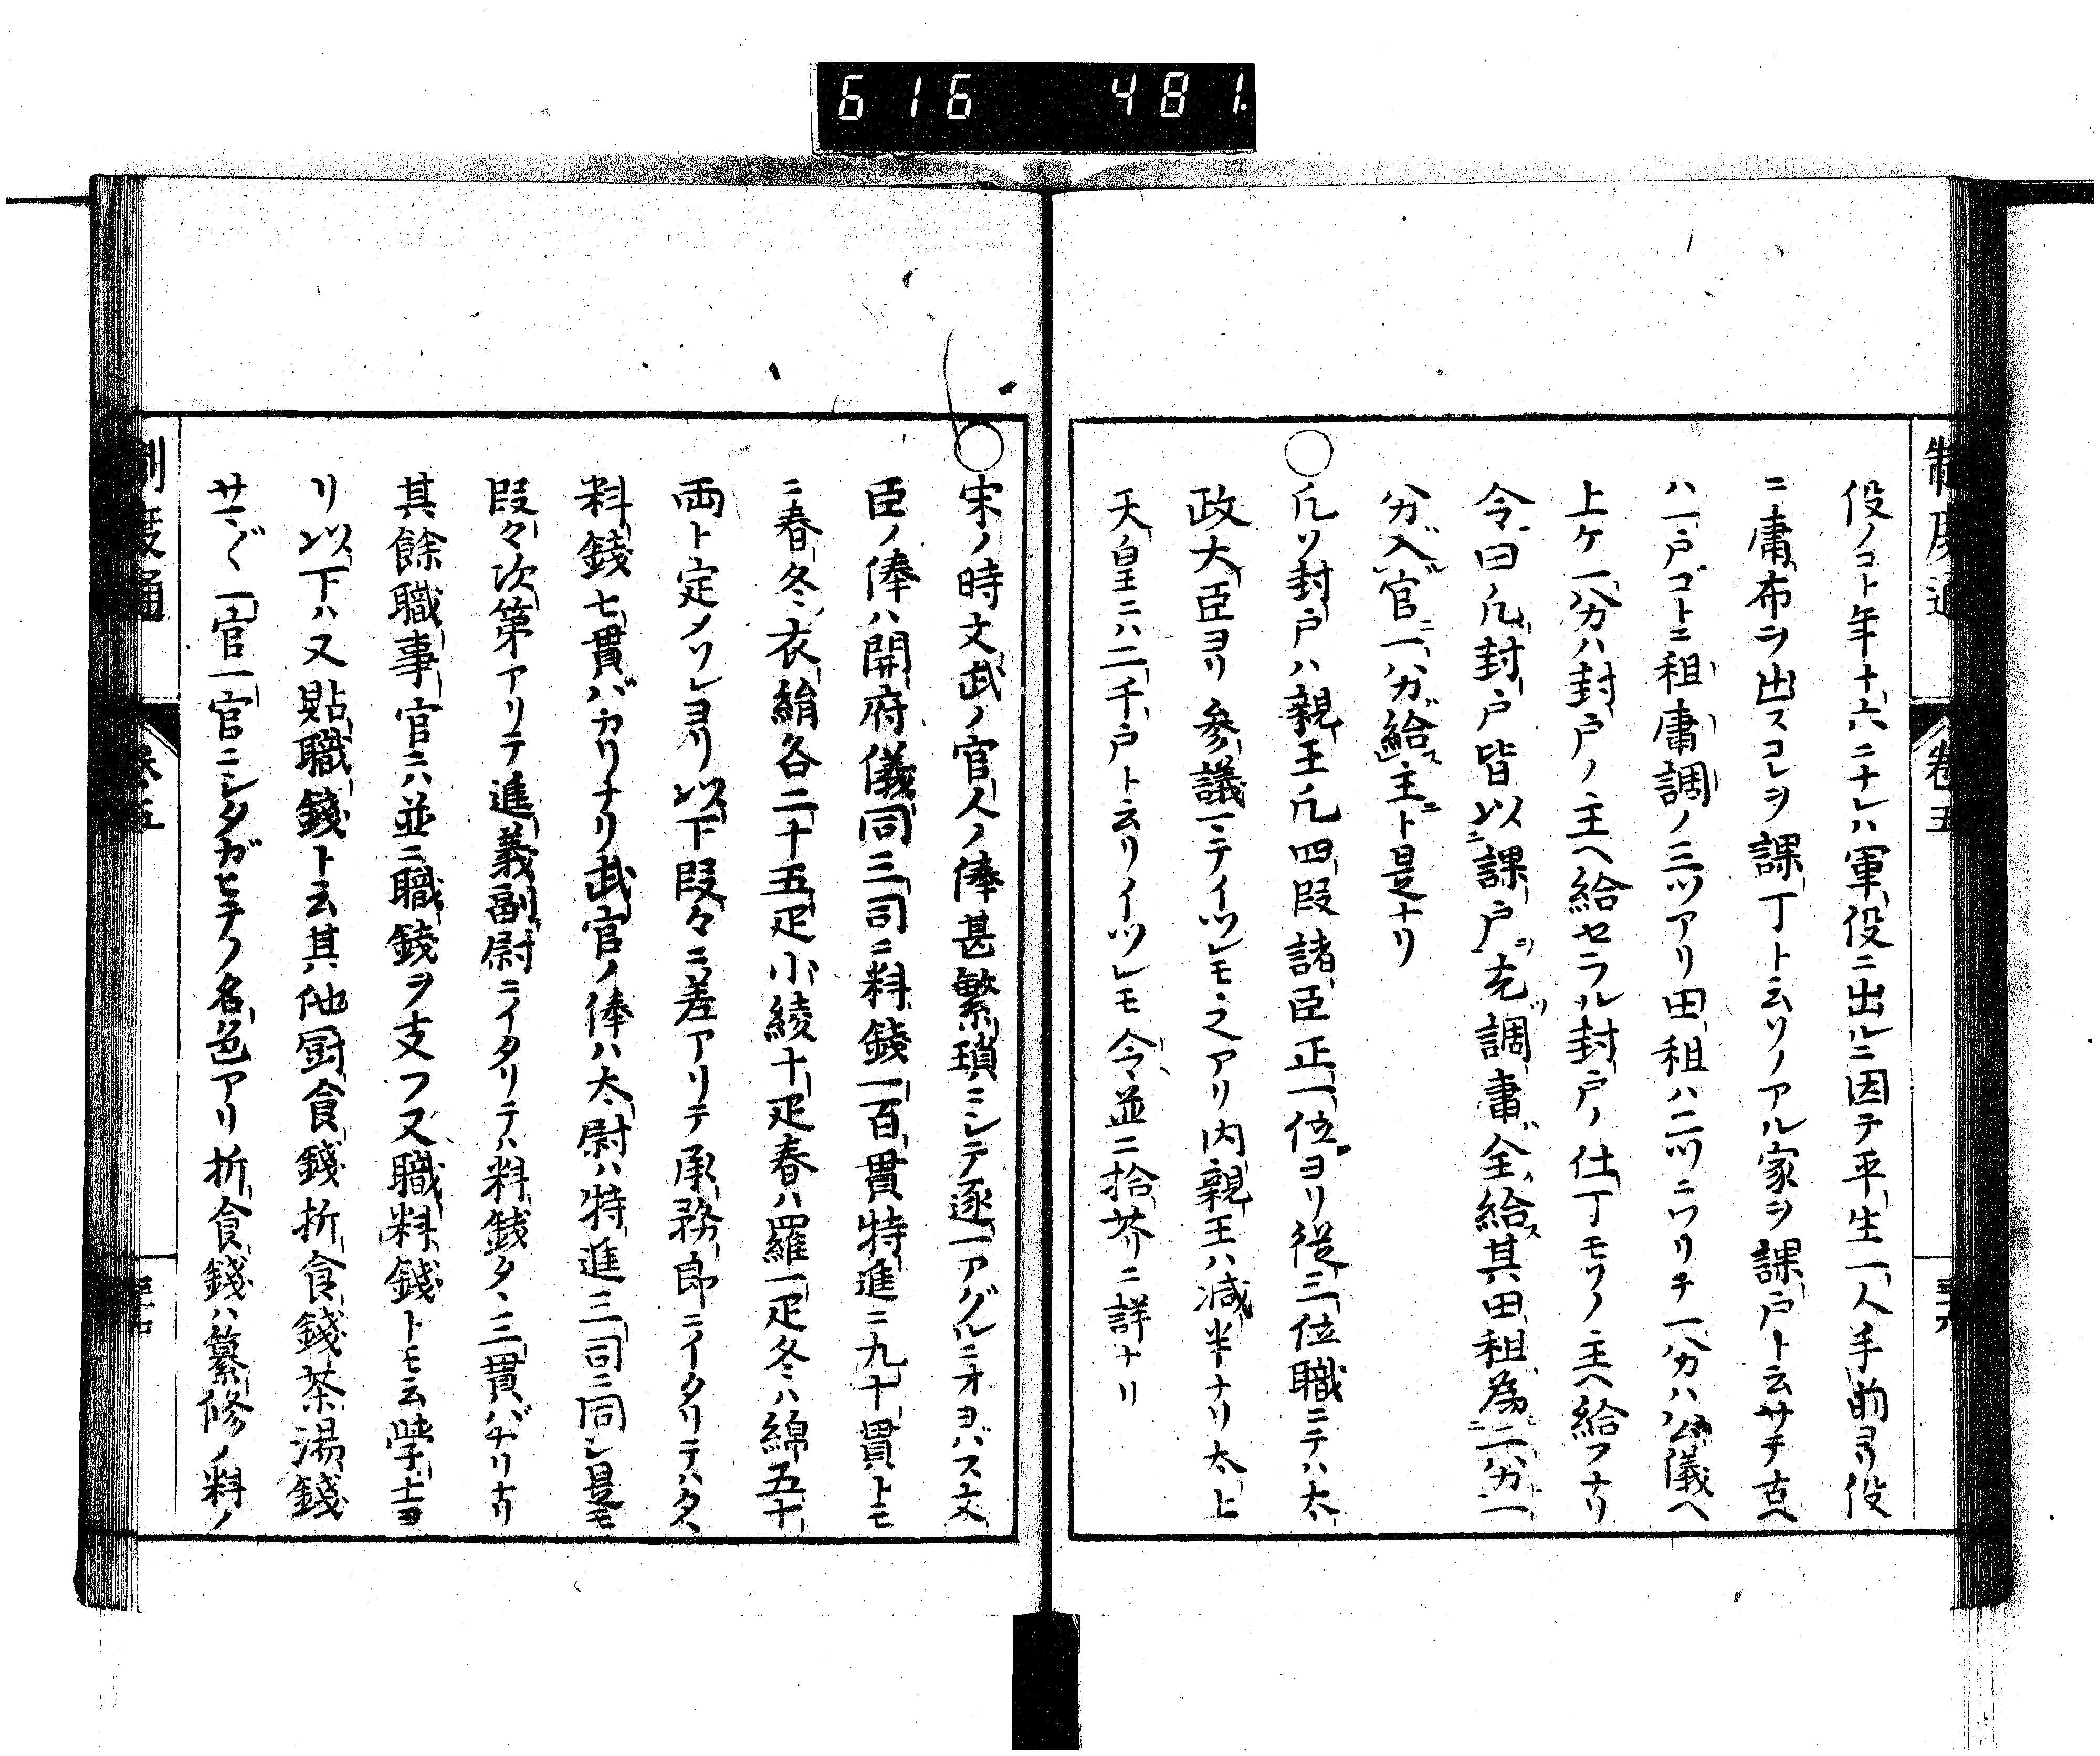 616 481
制度通
卷五
役ノコト年十六ニナレハ軍役ニ出ルニ因テ平生一人手前ヨリ役
ニ庸布ヲ出スコレヲ課丁ト云ソノアル家ヲ課戸ト云サテ古ヘ
ハ一戸ゴトニ租庸調ノ三ツアリ田租ハ二ツニワリテ一分ハ公儀ヘ
上ケ一分ハ封戸ノ主ヘ給セラル封戸ノ仕丁モソノ主ヘ給フナリ
令ニ曰凡封戸皆以課戸充調庸全給其田租為二分一
分入官一分給主ト是ナリ
〇凡ソ封戸ハ親王凡四段諸臣正一位ヨリ従三位職ニテハ太
政大臣ヨリ参議ニテイツレモ之アリ内親王ハ减半ナリ太上
天皇ニハ二千戸ト云リイツレモ令並ニ拾芥ニ詳ナリ
〇宋ノ時文武ノ官人ノ俸甚繁瑣ニシテ逐一アグルニオヨバス文
臣ノ俸ハ開府儀同三司ニ料錢一百貫特進ニ九十貫トモ
ニ春冬衣絹各二十五疋小綾十疋春ハ羅一疋冬ハ綿五十
両ト定メソレヨリ以下段々ニ差アリテ承務郎ニイタリテハタヽ
料錢七貫バカリナリ武官ノ俸ハ太尉ハ特進三司ニ同シ是モ
段々次第アリテ進義副尉ニイタリテハ料錢タヽ三貫バカリナリ
其餘職事官ニハ並ニ職錢ヲ支フ又職料錢トモ云學士ヨ
リ以下ハ又貼職錢ト云其他厨食錢折食錢茶湯錢
サマ〲一官一官ニシタガヒテノ名色アリ折食錢ハ纂修ノ料ノ
制度通
卷五